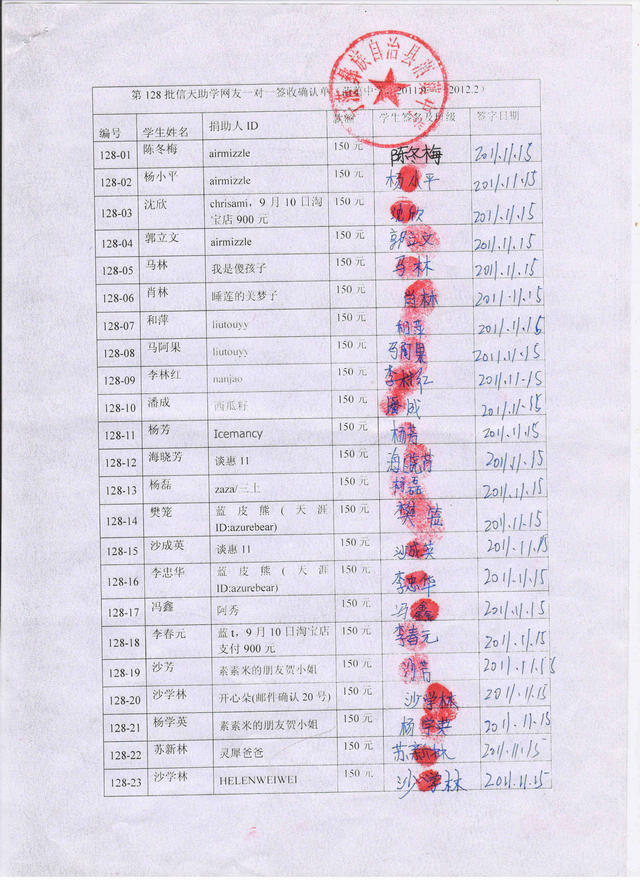 彝族自治县
第128批信天助学网友一对一签收确认单 2011 2012.2）
编号 学生姓名 捐助人ID 学生签名及班级 签字日期
128-01 陈冬梅 airmizzle 150元 陈冬梅 2011.11.15
128-02 杨小平 airmizzle 150元 杨小平 2011.11.15
128-03 沈欣 chrisami，9月10日淘 150元 沈欣 2011.11.15
宝店900元
128-04 郭立文 airmizzle 150元 郭立文 2011.11.15
128-05 马林 我是傻孩子 150元 马林 2011.11.15
128-06 肖林 睡莲的美梦子 150元 肖林 2011.11.15
128-07 和萍 liutouyy 150元 和萍 2011.11.15
128-08 马阿果 liutouyy 150元 马阿果 2011.11.15
128-09 李林红 nanjao 150元 李林红 2011.11.15
128-10 潘成 西瓜籽 150元 潘成 2011.11.15
128-11 杨芳 Icemancy 150元 杨芳 2011.11.15
128-12 海晓芳 谈惠11 150元 海晓芳 2011.11.15
128-13 杨磊 zaza/三上 150元 杨磊 2011.11.15
128-14 樊笼 蓝皮熊(天涯 150元 樊笼 2011.11.15
ID:azurebear)
128-15 沙成英 谈惠11 150元 沙成英 2011.11.15
128-16 李忠华 蓝皮熊(天涯 150元 李忠华 2011.11.15
ID:azurebear)
128-17 冯鑫 阿秀 150元 冯鑫 2011.11.15
128-18 李春元 蓝t，9月10日淘宝店 150元 李春元 2011.11.15
支付900元
128-19 沙芳 素素米的朋友贺小姐 150元 沙芳 2011.11.15
128-20 沙学林 开心朵(邮件确认20号) 150元 沙学林 2011.11.15
128-21 杨学英 素素米的朋友贺小姐 150元 杨学英 2011.11.15
128-22 苏新林 灵犀爸爸 150元 苏新林 2011.11.15
128-23 沙学林 HELENWEIWEI 150元 沙学林 2011.11.15